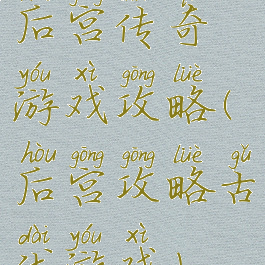 后宫传奇
yóu xì gōng lüè
游戏攻略(
hòu gōng gōng lüè gǔ
后宫攻略古
dài yóu xì
代游戏)